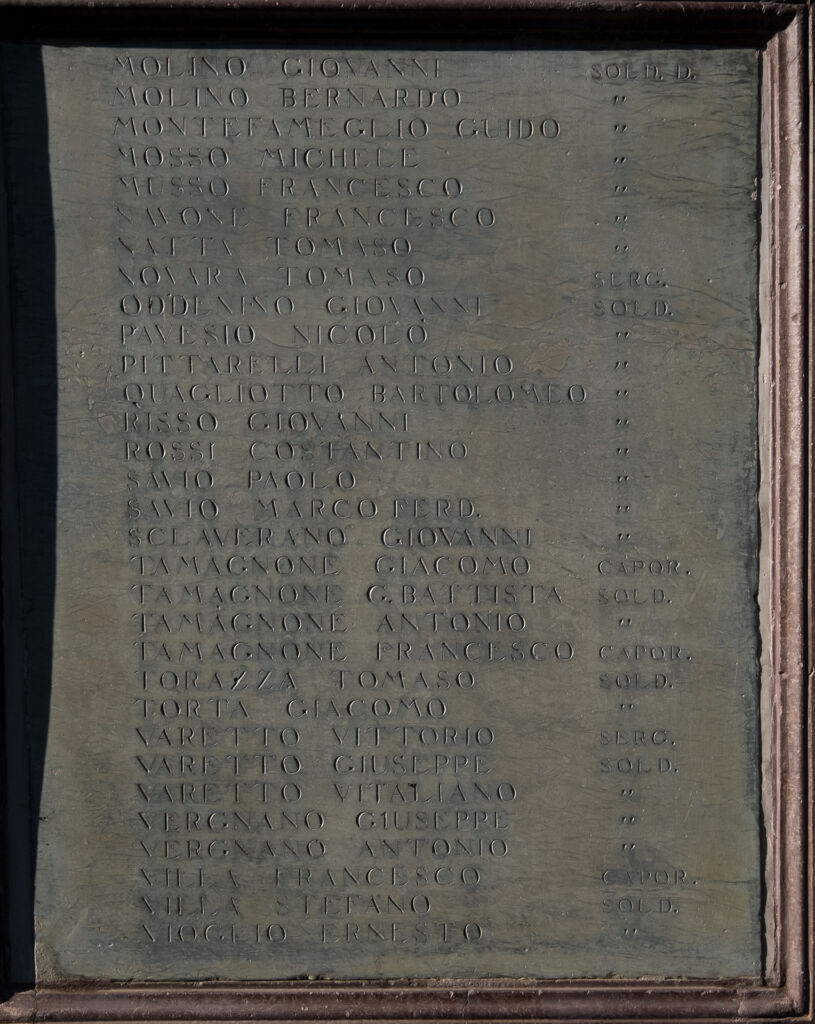 MOLINO GIOVANNI SOLD. D.
MOLINO BERNARDO "
MONTEFAMEGLIO GUIDO "
MOSSO MICHELE "
MUSSO FRANCESCO "
NAVONE FRANCESCO "
NATTA TOMASO "
NOVARA TOMASO SERG.
ODDENINO GIOVANNI SOLD.
PAVESIO NICOLO "
PITTARELLI ANTONIO "
QUAGLIOTTO BARTOLOMEO "
RISSO GIOVANNI "
ROSSI COSTANTINO "
SAVIO PAOLO "
SAVIO MARCO FERD. "
SCLAVERANO GIOVANNI "
TAMAGNONE GIACOMO CAPOR.
TAMAGNONE G.BATTISTA SOLD.
TAMAGNONE ANTONIO "
TAMAGNONE FRANCESCO CAPOR.
TORAZZA TOMASO SOLD.
TORTA GIACOMO "
VARETTO VITTORIO SERG.
VARETTO GIUSEPPE SOLD.
VARETTO VITALIANO "
VERGNANO GIUSEPPE "
VERGNANO ANTONIO "
VILLA FRANCESCO CAPOR.
VILLA STEFANO SOLD.
VIOGLIO ERNESTO "